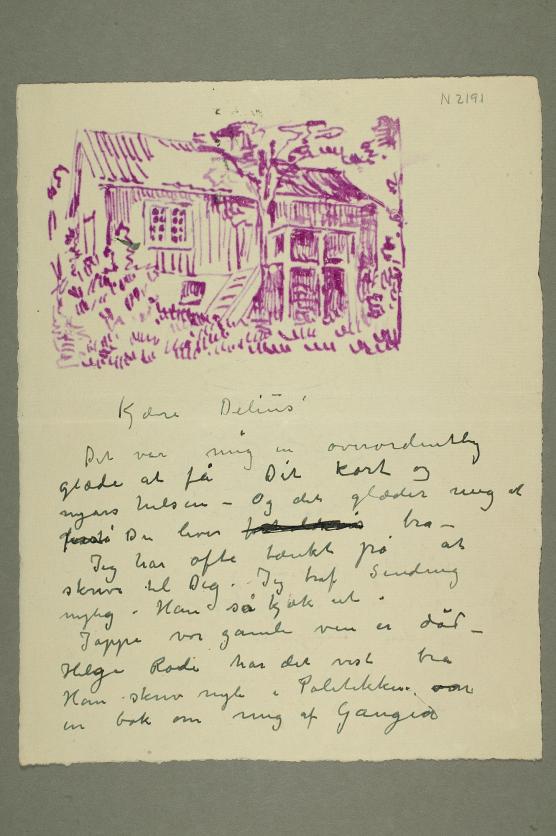 N 2191
Kjære Delius!
Det var mig en overordentlig
glæde at få Dit kort og
nyårs hilsen – Og det glæder mig at
Du lever bra –
Jeg har ofte tænkt på at
skrive til Dig. Jeg traf Sinding
nylig. Han så kjæk ut.
Jappe vor gamle ven er död –
Helge Rode har det vist bra
Han skrev nylig i Politikken
en bok om mig af Gauguin